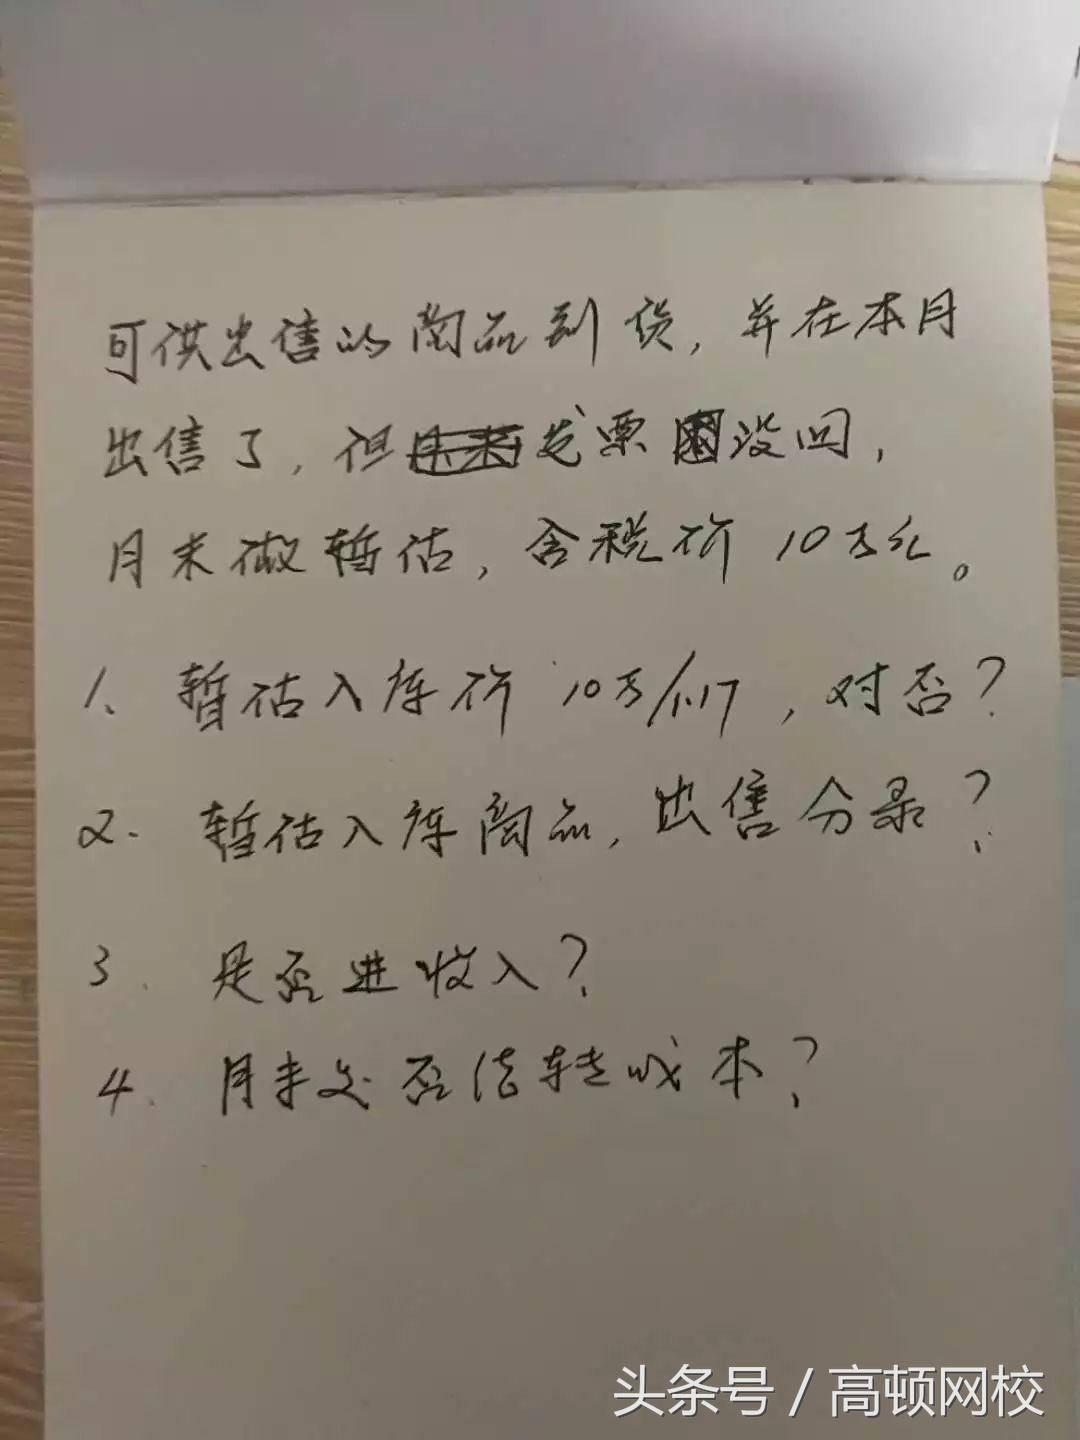 可供出售的商品到货，并在本月
出售了，但发票没回，
月末做暂估，含税价10万元。
1、暂估入库价10万/1.17，对否？
2. 暂估入库商品，出售分录？
3. 是否进收入？
4. 月末是否结转成本？
头条号 / 高顿网校